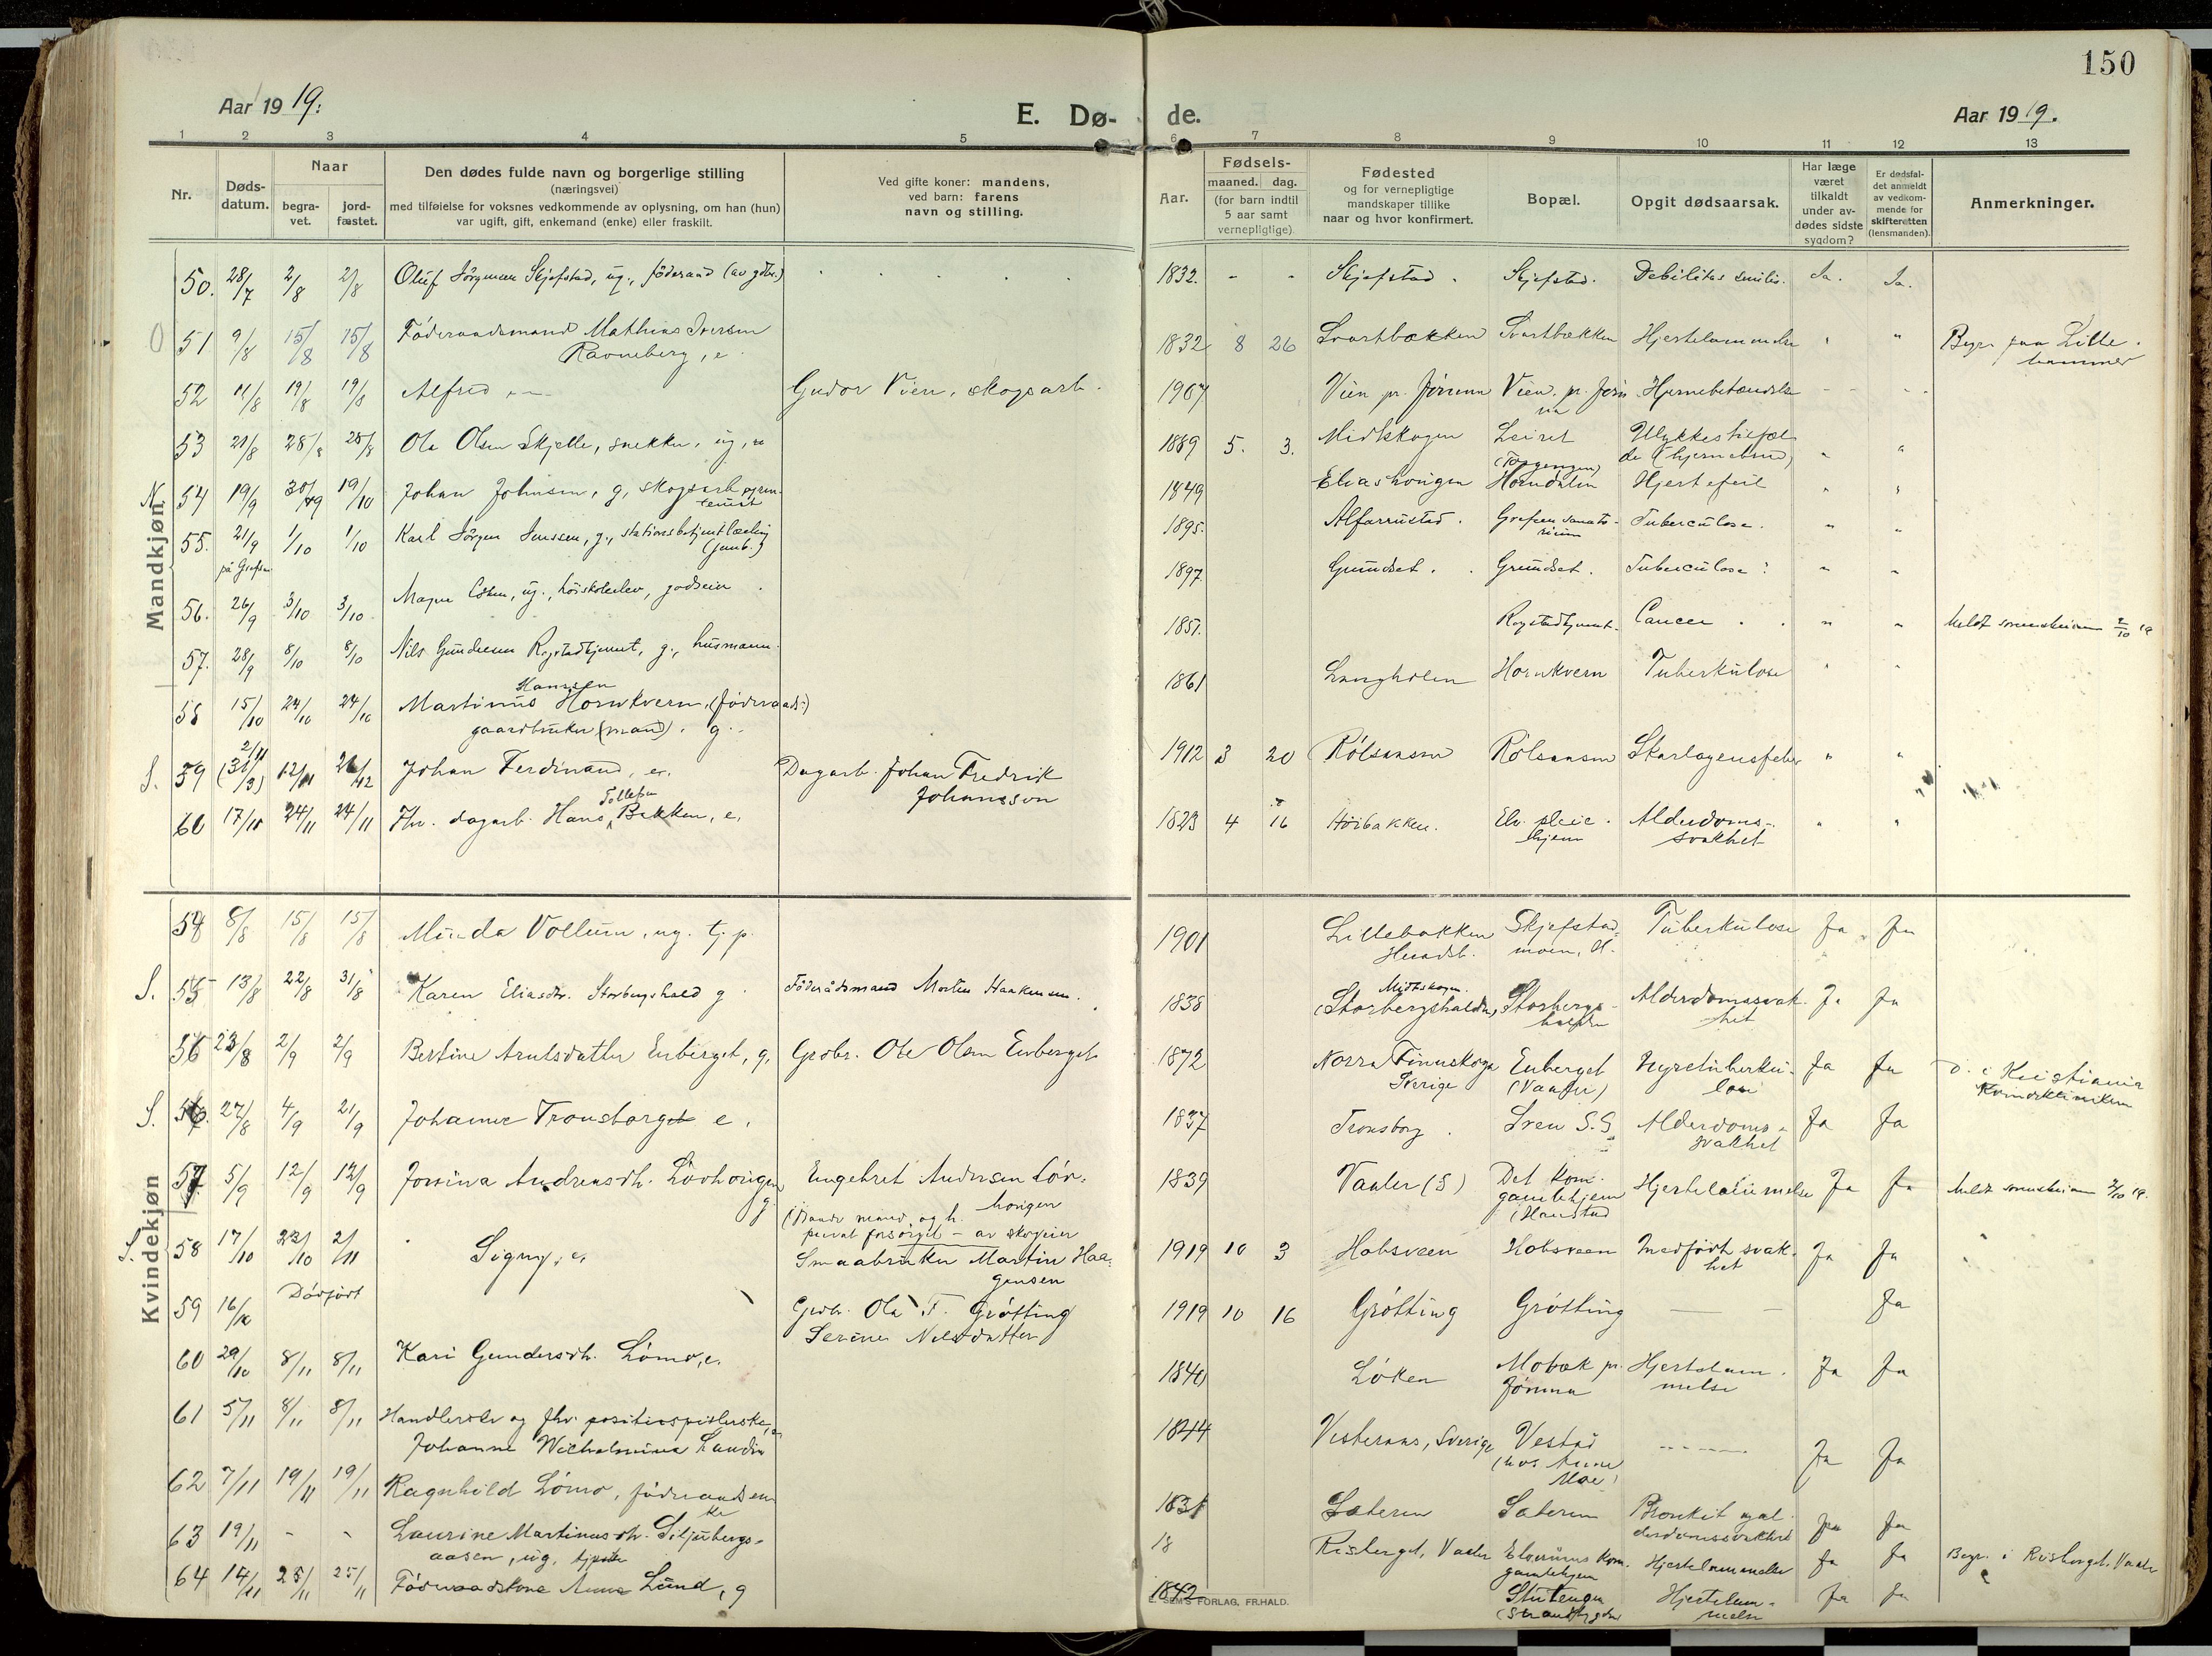 150
Aar 1919:
E. Dø-
de.
Aar 1919.
1 2 3 4 5 6 7 8 9 10 11 12 13
Nr.
Døds-
datum.
Naar
begra-
vet.
jord-
fæstet.
Den dødes fulde navn og borgerlige stilling
(næringsvei)
med tilføielse for voksnes vedkommende av oplysning, om han (hun)
var ugift, gift, enkemand (enke) eller fraskilt.
Ved gifte koner: mandens,
ved barn: farens
navn og stilling.
Aar.
Fødsels-
maaned. dag.
(for barn indtil
5 aar samt
vernepligtige).
Fødested
og for vernepligtige
mandskaper tillike
naar og hvor konfirmert.
Bopæl.
Opgit dødsaarsak.
Har læge
været
tilkaldt
under av-
dødes sidste
sygdom?
Er dødsfal-
det anmeldt
av vedkom-
mende for
skifteretten
(lensmanden).
Anmerkninger.
Mandkjøn
50. 28/7 2/8 2/8 Oluf Jørgensen Skjefstad, ug., føderaad (av gdbr.) 1832. - - Skjefstad. Skjefstad. Debilitas senilis. Ja. Ja.
51 9/8 15/8 15/8 Føderaadsmand Mathias Iversen
Ravneberg, e. 1832 8 26 Svartbækken Svartbækken Hjertelammelse " " Begr. paa Lille-
hammer
52 11/8 19/8 19/8 Alfred Gudor Vien, skogsarb. 1907 Vien pr. Jømna Vien pr. Jøm
na Hjernebetændelse - -
53 21/8 28/8 28/8 Ola Olsen Skjelle, snekker, ug, 1889 5. 3. Midtskogen Leiret Ulykkestilfæl
de (hjerneblød)
N. 54 19/9 30/9 19/10 Johan Johnsen, g, skogsarb. 1849 Eliashougen Horndalen Hjertefeil
55. 21/9 1/10 1/10 Karl Jørgen Jenssen, g., stationsbetjentlærling
(jernb.) 1895. Alfarrustad. Grefsen sanato-
rium Tuberculose.
på Grefsen
56. 26/9 3/10 3/10 Magne Olsen, ug., høiskoleelev, godseier 1897 Grundset. Grundset. Tuberculose
57. 28/9 8/10 8/10 Nils Gundersen Rogstadtjernet, g., husmann 1851. Rogstadtjernet. Cancer " " Meldt sorenskriveren 2/10 19
58 15/10 24/10 24/10 Martinus Hanssen Hornkvern, (føderaads-)
gaardbruker (mand). g. 1861 Langholen Hornkvern Tuberkulose " "
S. 59 2/11 (31/3) 12/11 21/12 Johan Ferdinand, e. Dagarb. Johan Fredrik
Johansson 1912 3 20 Rølsåsen Rølsåsen Skarlagensfeber " "
60 17/11 24/11 24/11 Fhv. dagarb. Hans Tollefsen Bakken, e. 1823 4 16 Høibakken. Elv. pleie-
hjem Alderdoms-
svakhet " "
Kvindekjøn
54 8/8 15/8 15/8 Minda Vollum, ug. tj. p. 1901 Lillebakken
Skjefstad-
moen, H. Tuberkulose Ja Ja
S. 55 13/8 22/8 31/8 Karen Eliasdtr. Storbergshald g Føderådsmand Morten Haakensen. 1838 Midtskogen
(Storbergshalden, Storbergs-
halden Alderdomssvak-
het Ja Ja
56 23/8 2/9 2/9 Bertine Arntsdatter Enberget, g. Grdbr. Ole Olsen Enberget 1872 Norra Finnskoga
Sverige Enberget
(Vaaler) Nyretuberku-
lose Ja Ja D. i Kristiania
Kvindeklinikken
S. 56. 27/8 4/9 21/9 Johanne Tronsborget e. 1837 Tronsborg Iren S.G Alderdoms-
svakhet Ja Ja
57 5/9 12/9 12/9 Josina Andreasdtr. Løvhougen
g Engebret Andersen Løv-
hougen
(Baade mand og h.
privat forsørget - av skogeier 1839 Vaaler (S) Det kom.
gamlehjem
(Hanstad Hjertelammelse Ja Ja Meldt sorenskriveren 2/10 19.
S. 58 17/10 23/10 2/11 Signy, e. Smaabruker Martin Haa-
gensen 1919 10 3 Hobsveen Hobsveen Medfødt svak-
het Ja Ja
59 16/10 Dødfødt Grdbr. Ola T. Grøtting
Serine Nilsdatter 1919 10 16 Grøtting Grøtting — — Ja
60 29/10 8/11 8/11 Kari Gundersdtr. Lømo, e. 1840 Løken Mobæk pr.
Jømna Hjertelam-
melse Ja Ja
61 5/11 8/11 8/11 Handlerske og fhv. positivspillerske,
Johanne Wilhelmine Lundin 1844 Vesteraas, Sverige Vestad
(hos Anne
Moe) Ja Ja
62 7/11 19/11 19/11 Ragnhild Lømo, føderaadsen
ke 1831 Sæteren Sæteren Bronkit og al-
derdomssvakhet Ja Ja
63 19/11 - - Laurine Martinusdtr. Siljubergs-
aasen, ug. 18 Risberget, Vaaler Elverums kom.
gamlehjem Hjertelammelse Ja Ja Begr. i Risberget, Vaaler
64 14/11 25/11 25/11 Føderaadskone Anne Lund, g 1842 Stutengen
(Strandbygden Hjertelam-
melse Ja Ja
E. SEM'S FORLAG, FR.HALD.